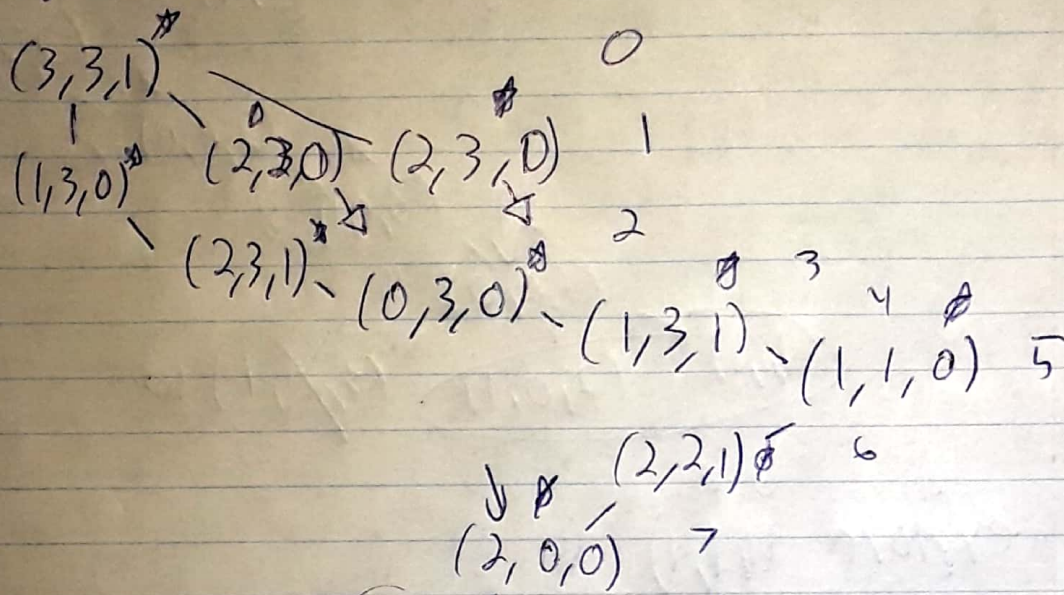 (3,3,1) 0
(1,3,0) (2,3,0) (2,3,0) 1
(2,3,1) (0,3,0) 2
(1,3,1) 3
(1,1,0) 4 5
(2,2,1) 6
(2,0,0) 7